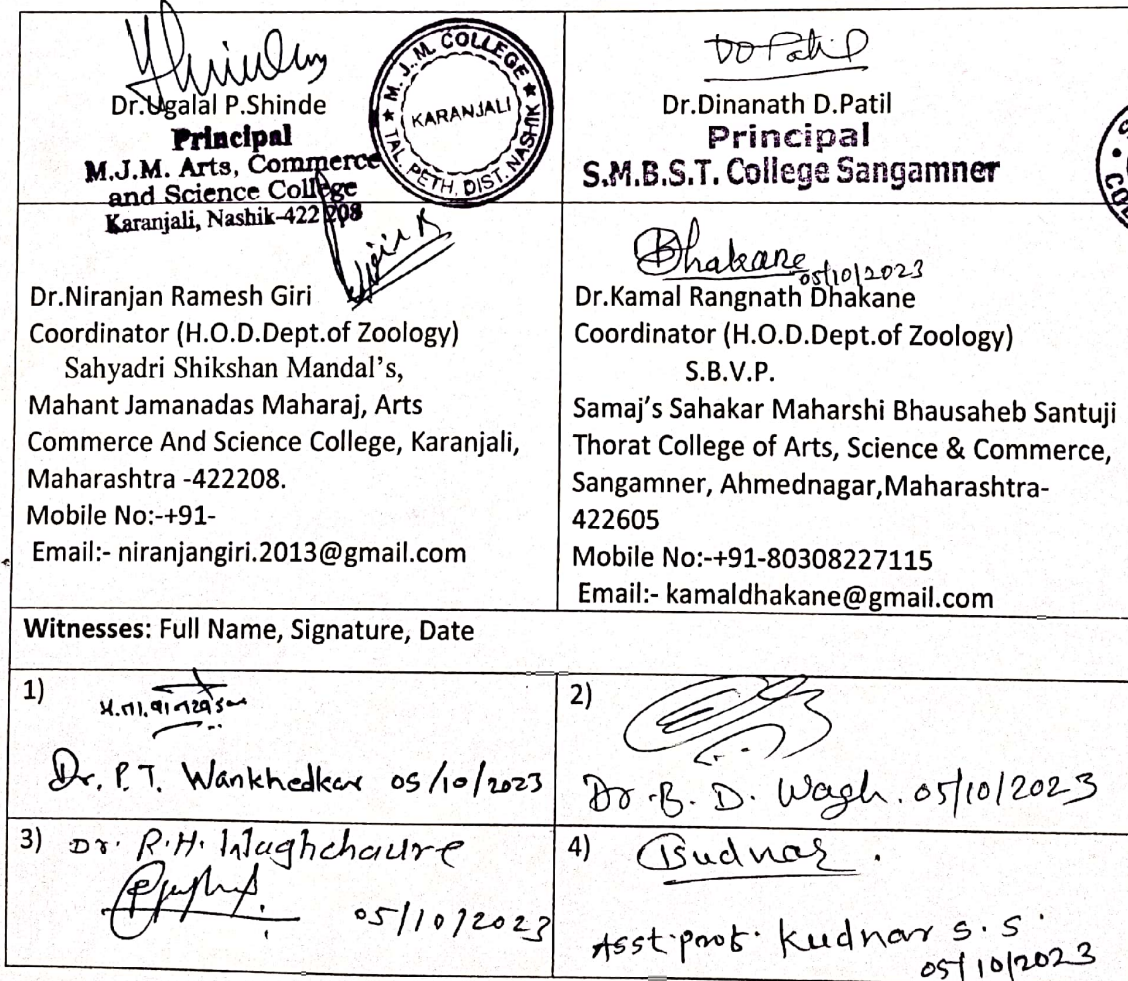 Dr.Ugalal P.Shinde
Principal
M.J.M. Arts, Commerce
and Science College
Karanjali, Nashik-422 208
★ M. J. M. COLLEGE ★
KARANJALI
TAL. PETH. DIST. NASHIK
DD Patil
Dr.Dinanath D.Patil
Principal
S.M.B.S.T. College Sangamner
Dr.Niranjan Ramesh Giri
Coordinator (H.O.D.Dept.of Zoology)
Sahyadri Shikshan Mandal's,
Mahant Jamanadas Maharaj, Arts
Commerce And Science College, Karanjali,
Maharashtra -422208.
Mobile No:-+91-
Email:- niranjangiri.2013@gmail.com
Dhakane
05/10/2023
Dr.Kamal Rangnath Dhakane
Coordinator (H.O.D.Dept.of Zoology)
S.B.V.P.
Samaj's Sahakar Maharshi Bhausaheb Santuji
Thorat College of Arts, Science & Commerce,
Sangamner, Ahmednagar,Maharashtra-
422605
Mobile No:-+91-80308227115
Email:- kamaldhakane@gmail.com
Witnesses: Full Name, Signature, Date
1)
Dr. P.T. Wankhedkar 05/10/2023
2)
Dr. B. D. Wagh. 05/10/2023
3) Dr. R.H. Waghchaure
05/10/2023
4)
Kudnar.
Asst. prof. Kudnar S. S.
05/10/2023